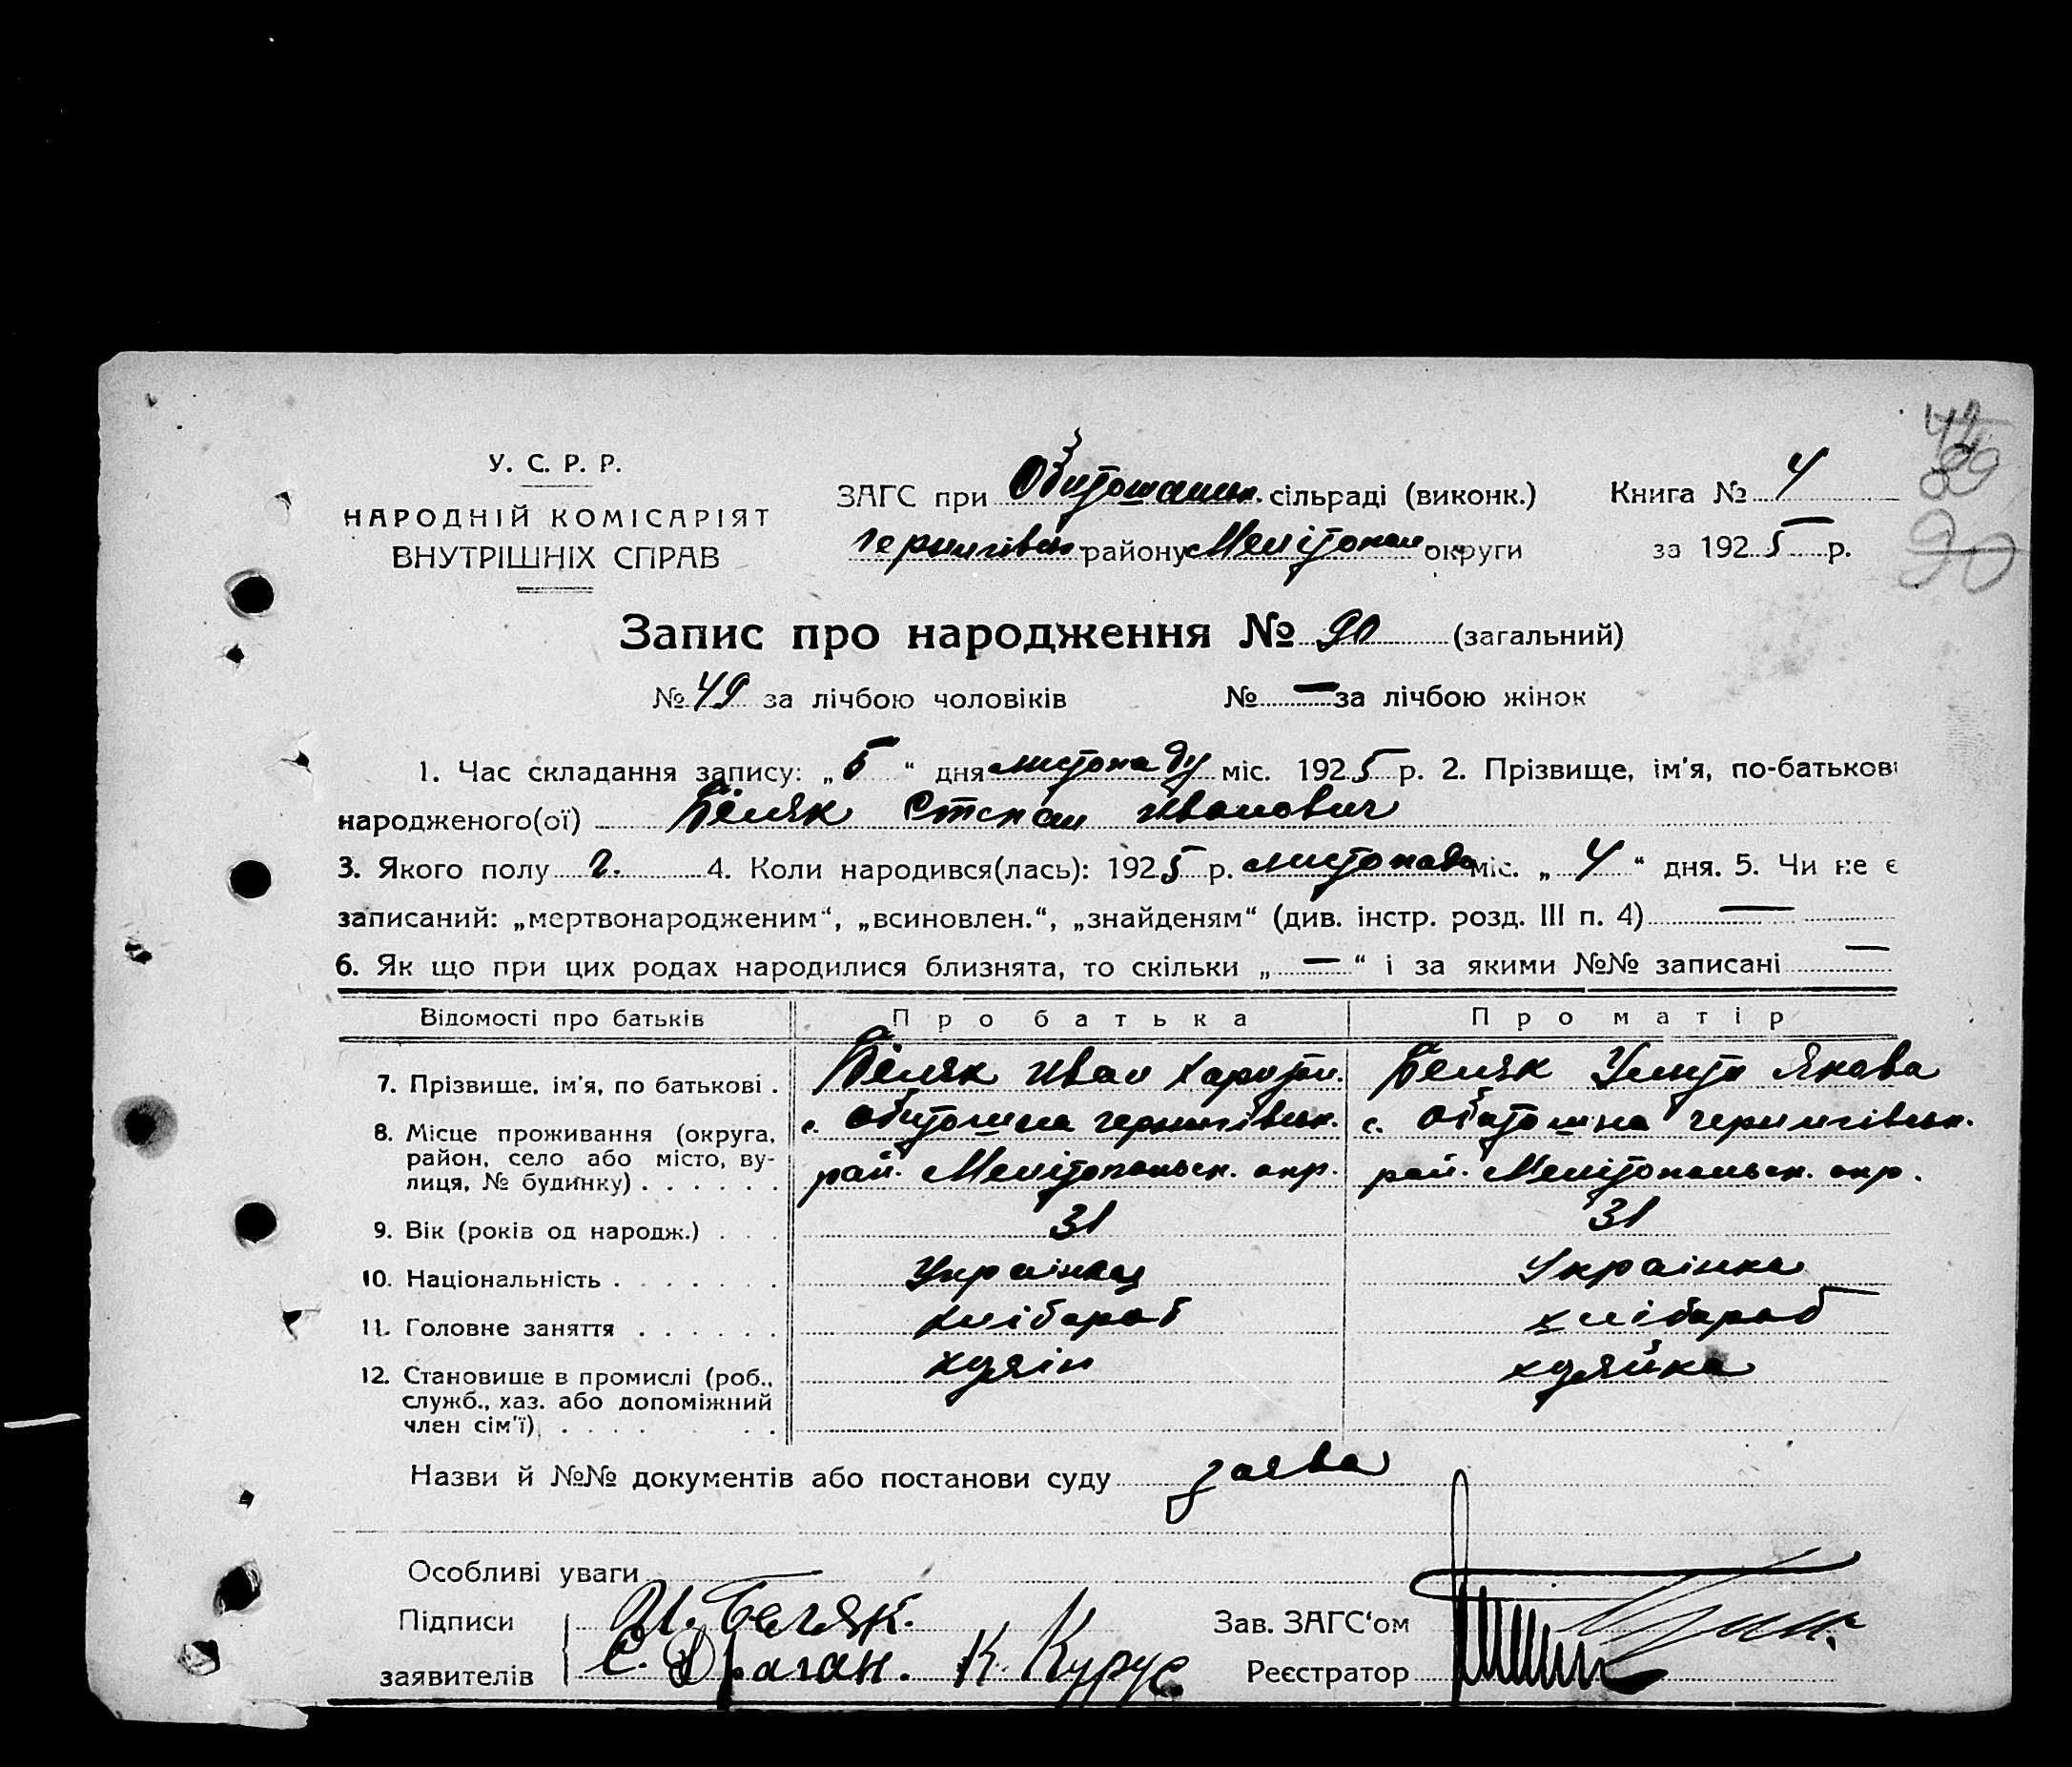 У. С. Р. Р.
НАРОДНІЙ КОМІСАРІЯТ
ВНУТРІШНІХ СПРАВ
ЗАГС при Обиточанськ. сільраді (виконк.)
Чернигівськ. району Мелітопол округи
Книга № 4
за 1925 р.
Запис про народження № 90 (загальний)
№ 49 за лічбою чоловіків № — за лічбою жінок
1. Час складання запису: „5“ дня листопаду міс. 1925 р. 2. Прізвище, ім'я, по-батькові
народженого(ої) Біляк Степан Иванович
3. Якого полу ч. 4. Коли народився(лась): 1925 р. листопада міс. „4“ дня. 5. Чи не є
записаний: „мертвонародженим“, „всиновлен.“, „знайденям“ (див. інстр. розд. III п. 4) —
6. Як що при цих родах народилися близнята, то скільки „—“ і за якими №№ записані —
Відомості про батьків Про батька Про матір
7. Прізвище, ім'я, по батькові . Біляк Иван Харитон. Беляк Улита Якова
8. Місце проживання (округа, с. Обиточна чернигівськ. с. Обиточна чернигівськ.
район, село або місто, ву-
лиця, № будинку) . . . . . . рай. Мелітопольск. окр. рай. Мелітопольск. окр.
9. Вік (років од народж.) . . . 31 31
10. Національність . . . . . . . Українец Українка
11. Головне заняття . . . . . . хлібороб хлібороб
12. Становище в промислі (роб., хозяін хозяйка
служб., хаз. або допоміжний
член сім'ї) . . . . . . .
Назви й №№ документів або постанови суду заява
Особливі уваги
Підписи И. Беляк. Зав. ЗАГС'ом
заявителів С. Драган. К. Курус Реєстратор